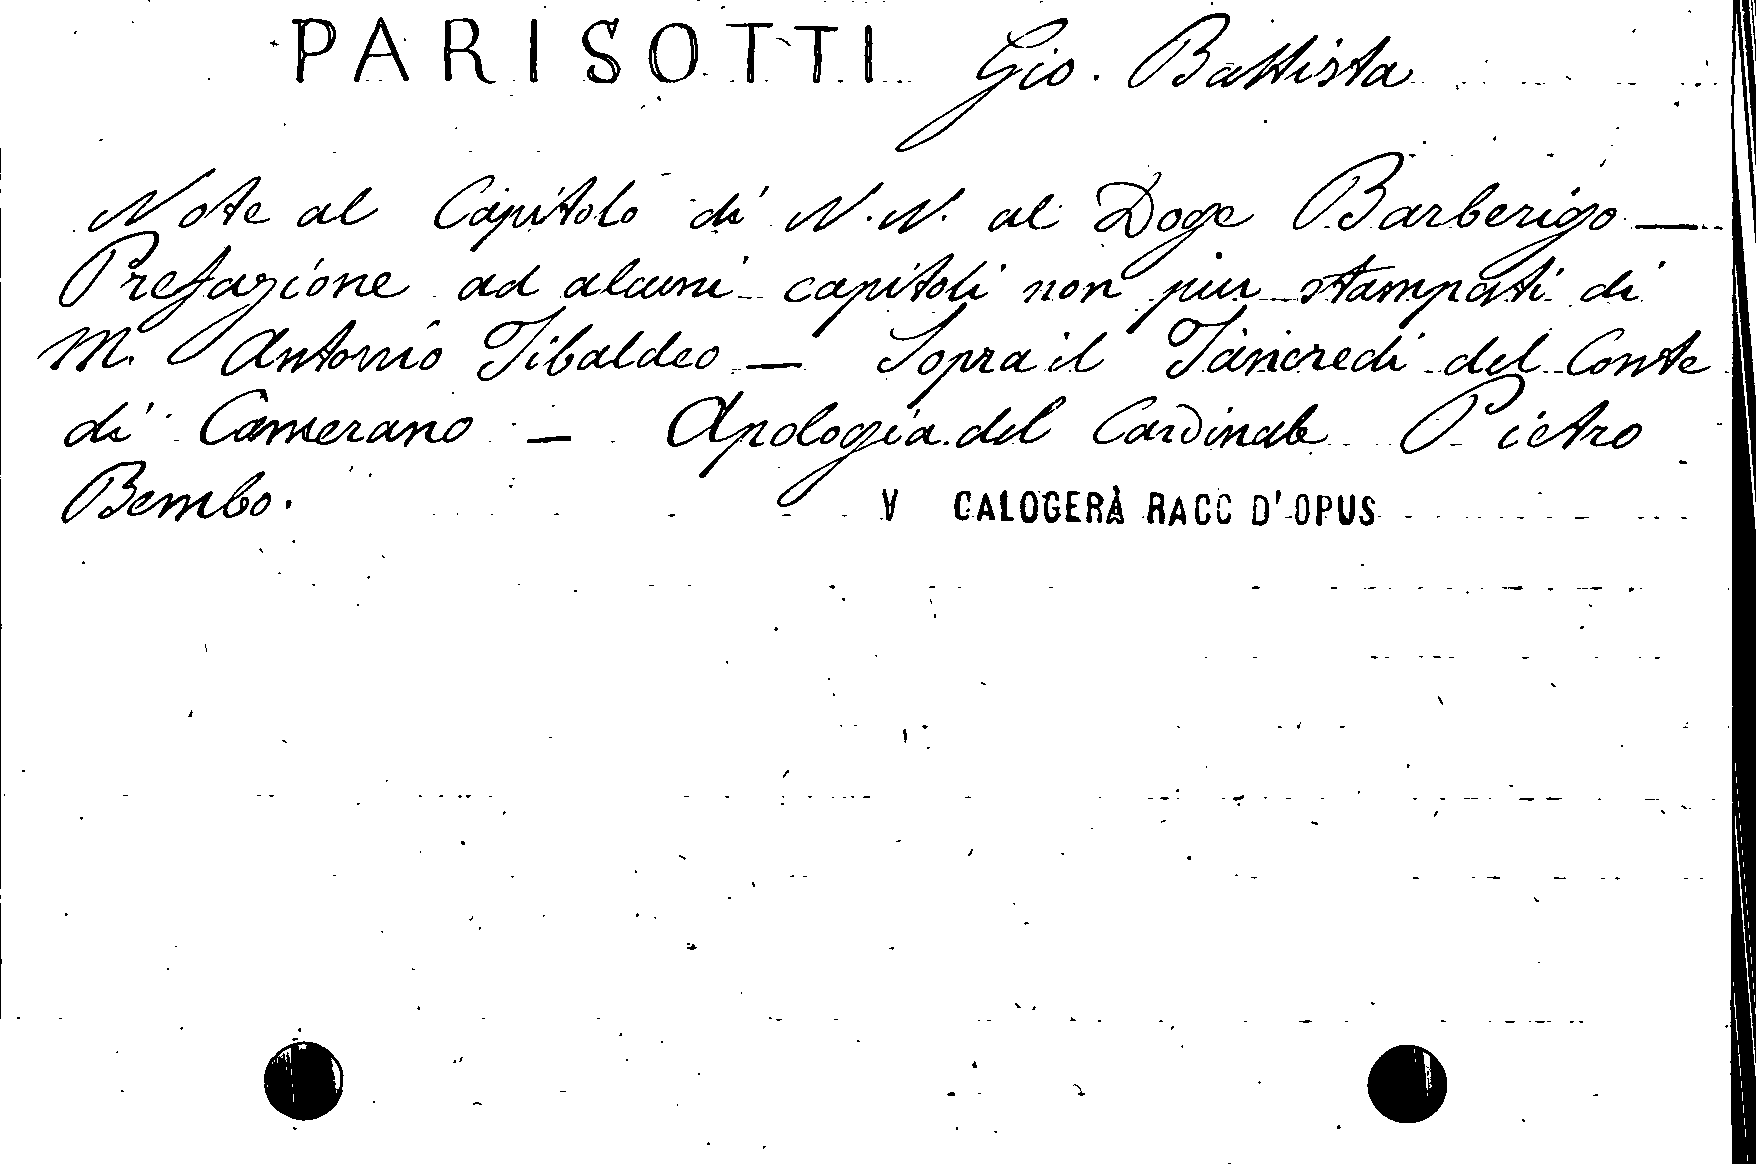 PARISOTTI Gio. Battista
Note al Capitolo di N.N. al Doge Barberigo —
Prefazione ad alcuni capitoli non piu stampati di
M. Antonio Tibaldeo — Sopra il Tancredi del Conte
di Camerano — Apologia del Cardinale Pietro
Bembo. V CALOGERÀ RACC D'OPUS